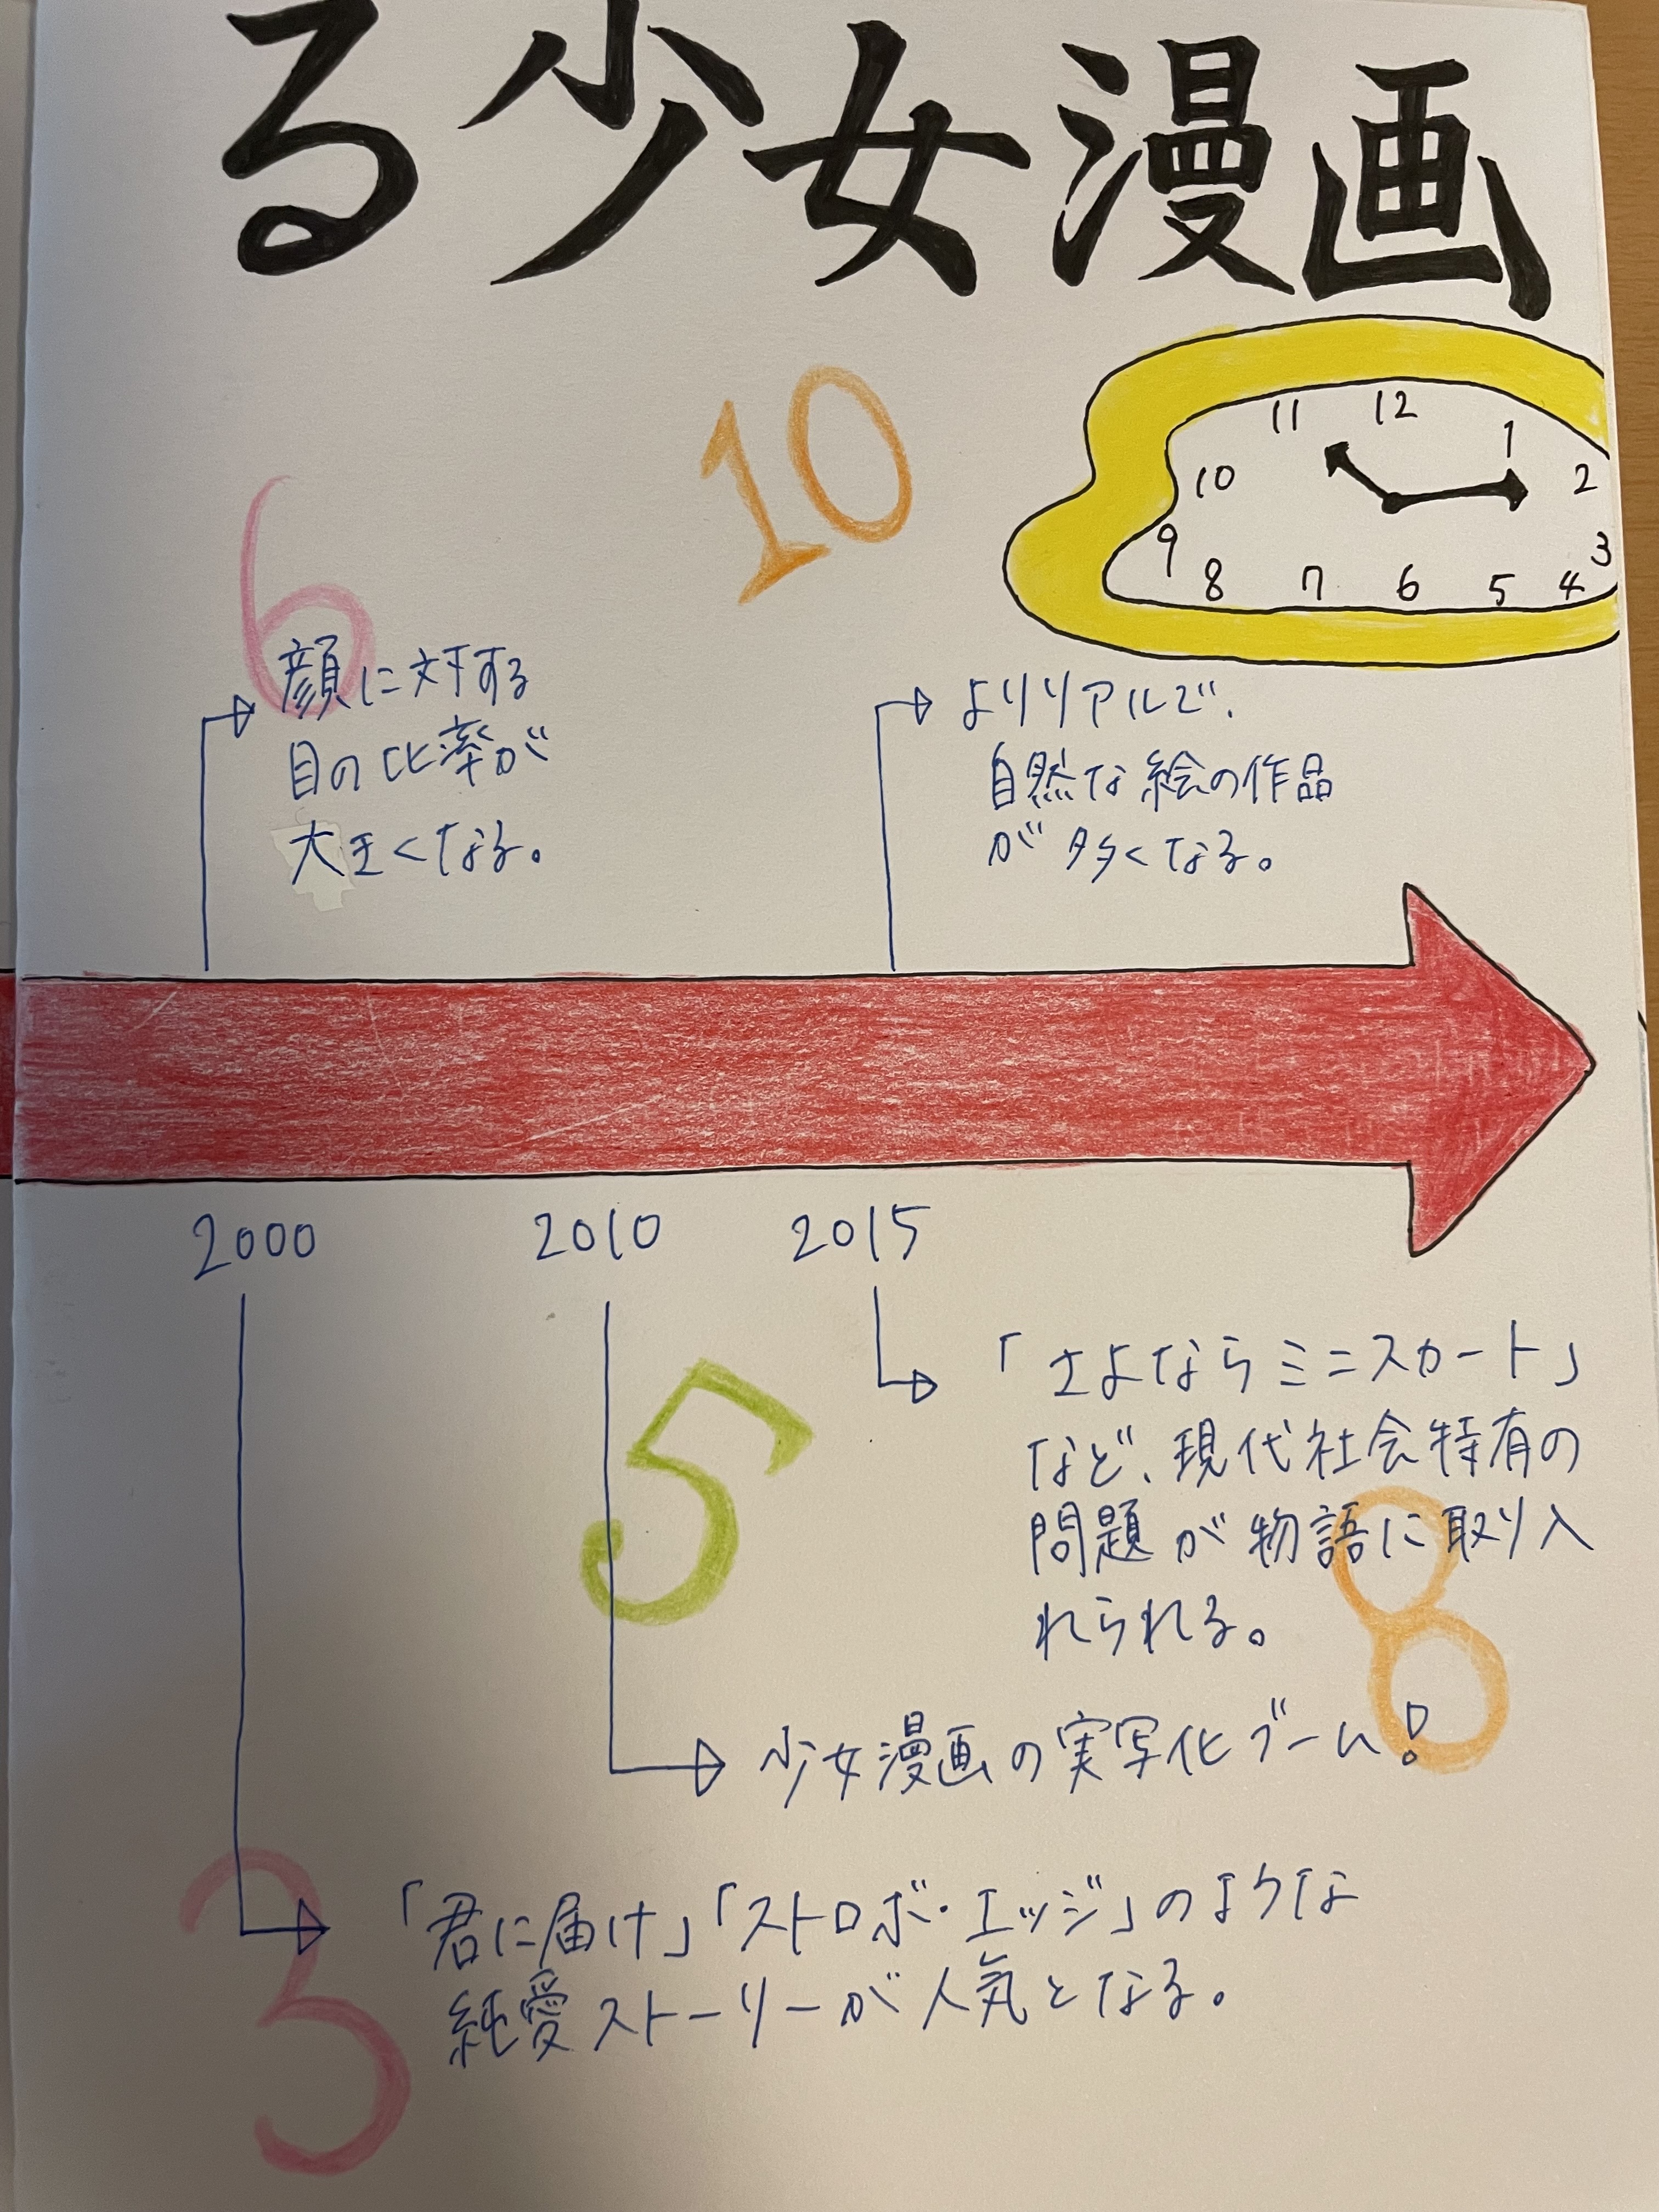 る少女漫画
10
11 12 1
10 2
9 3
8 7 6 5 4
6
顔に対する
目の比率が
大きくなる。
よりリアルで、
自然な絵の作品
が多くなる。
2000 2010 2015
「さよならミニスカート」
など、現代社会特有の
問題が物語に取り入
れられる。
5
8
少女漫画の実写化ブーム!
3
「君に届け」「ストロボ・エッジ」のような
純愛ストーリーが人気となる。